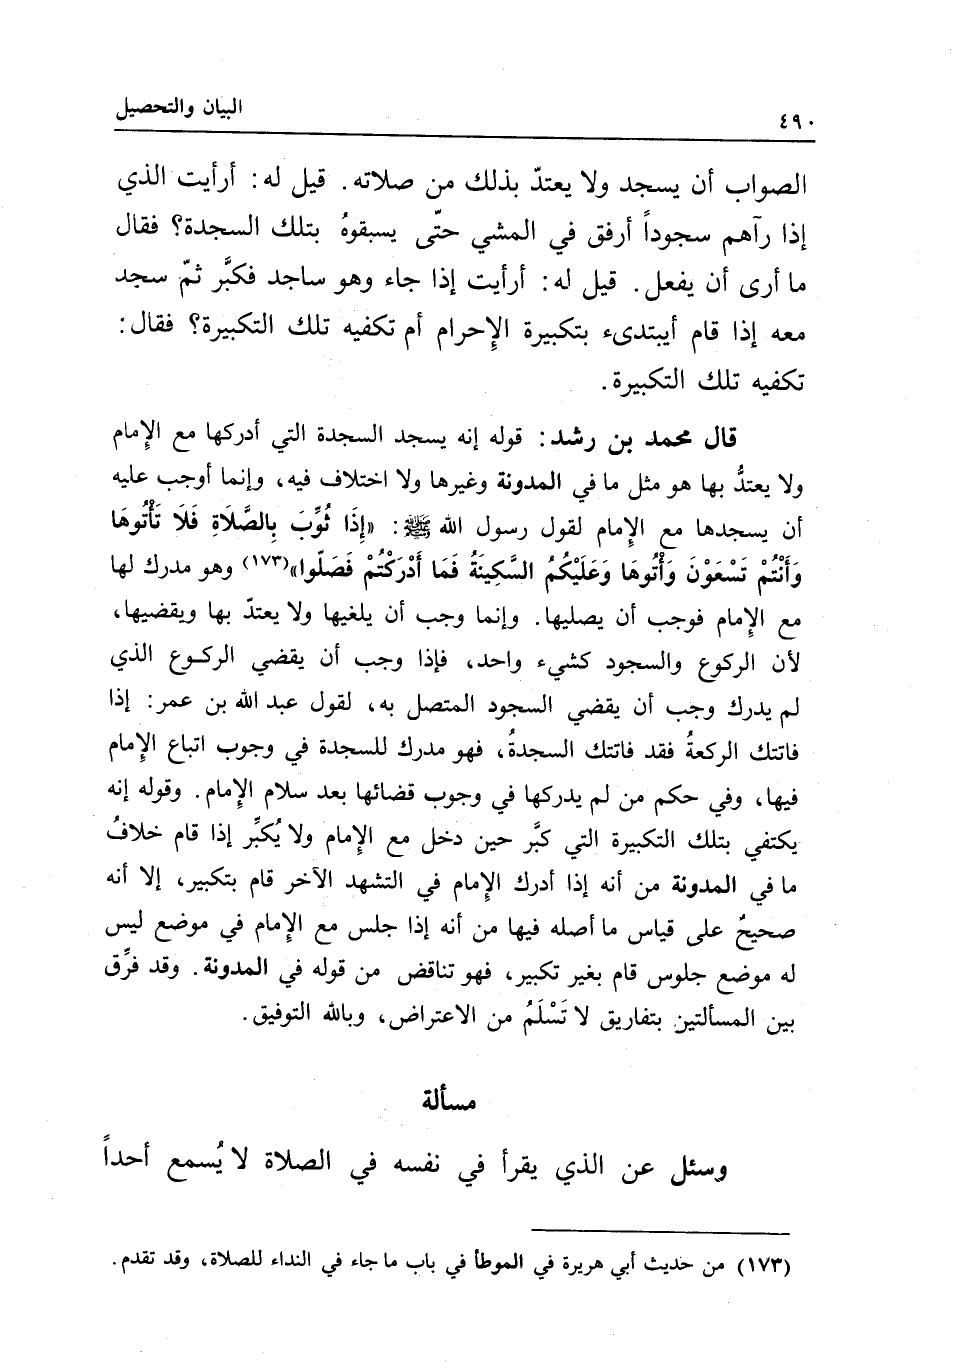 ٤٩٠ البيان والتحصيل
الصواب أن يسجد ولا يعتدّ بذلك من صلاته. قيل له: أرأيت الذي
إذا رآهم سجوداً أرفق في المشي حتّى يسبقوهُ بتلك السجدة؟ فقال
ما أرى أن يفعل. قيل له: أرأيت إذا جاء وهو ساجد فكبَّر ثمّ سجد
معه إذا قام أيبتدىء بتكبيرة الإحرام أم تكفيه تلك التكبيرة؟ فقال:
تكفيه تلك التكبيرة.
قال محمد بن رشد: قوله إنه يسجد السجدة التي أدركها مع الإمام
ولا يعتدُّ بها هو مثل ما في المدونة وغيرها ولا اختلاف فيه، وإنما أوجب عليه
أن يسجدها مع الإمام لقول رسول الله ﷺ: «إِذَا ثُوِّبَ بِالصَّلَاةِ فَلَا تَأْتُوهَا
وَأَنْتُمْ تَسْعَوْنَ وَأْتُوهَا وَعَلَيْكُمُ السَّكِينَةُ فَمَا أَدْرَكْتُمْ فَصَلّوا»(١٧٣) وهو مدرك لها
مع الإمام فوجب أن يصليها. وإنما وجب أن يلغيها ولا يعتدّ بها ويقضيها،
لأن الركوع والسجود كشيء واحد، فإذا وجب أن يقضي الركوع الذي
لم يدرك وجب أن يقضي السجود المتصل به، لقول عبد الله بن عمر: إذا
فاتتك الركعةُ فقد فاتتك السجدةُ، فهو مدرك للسجدة في وجوب اتباع الإمام
فيها، وفي حكم من لم يدركها في وجوب قضائها بعد سلام الإمام. وقوله إنه
يكتفي بتلك التكبيرة التي كبَّر حين دخل مع الإمام ولا يُكبِّر إذا قام خلافُ
ما في المدونة من أنه إذا أدرك الإمام في التشهد الآخر قام بتكبير، إلا أنه
صحيحٌ على قياس ما أصله فيها من أنه إذا جلس مع الإمام في موضع ليس
له موضع جلوس قام بغير تكبير، فهو تناقض من قوله في المدونة. وقد فرَّق
بين المسألتين بتفاريق لا تَسْلَمُ من الاعتراض، وبالله التوفيق.
مسألة
وسئل عن الذي يقرأ في نفسه في الصلاة لا يُسمع أحداً
(١٧٣) من حديث أبي هريرة في الموطأ في باب ما جاء في النداء للصلاة، وقد تقدم.